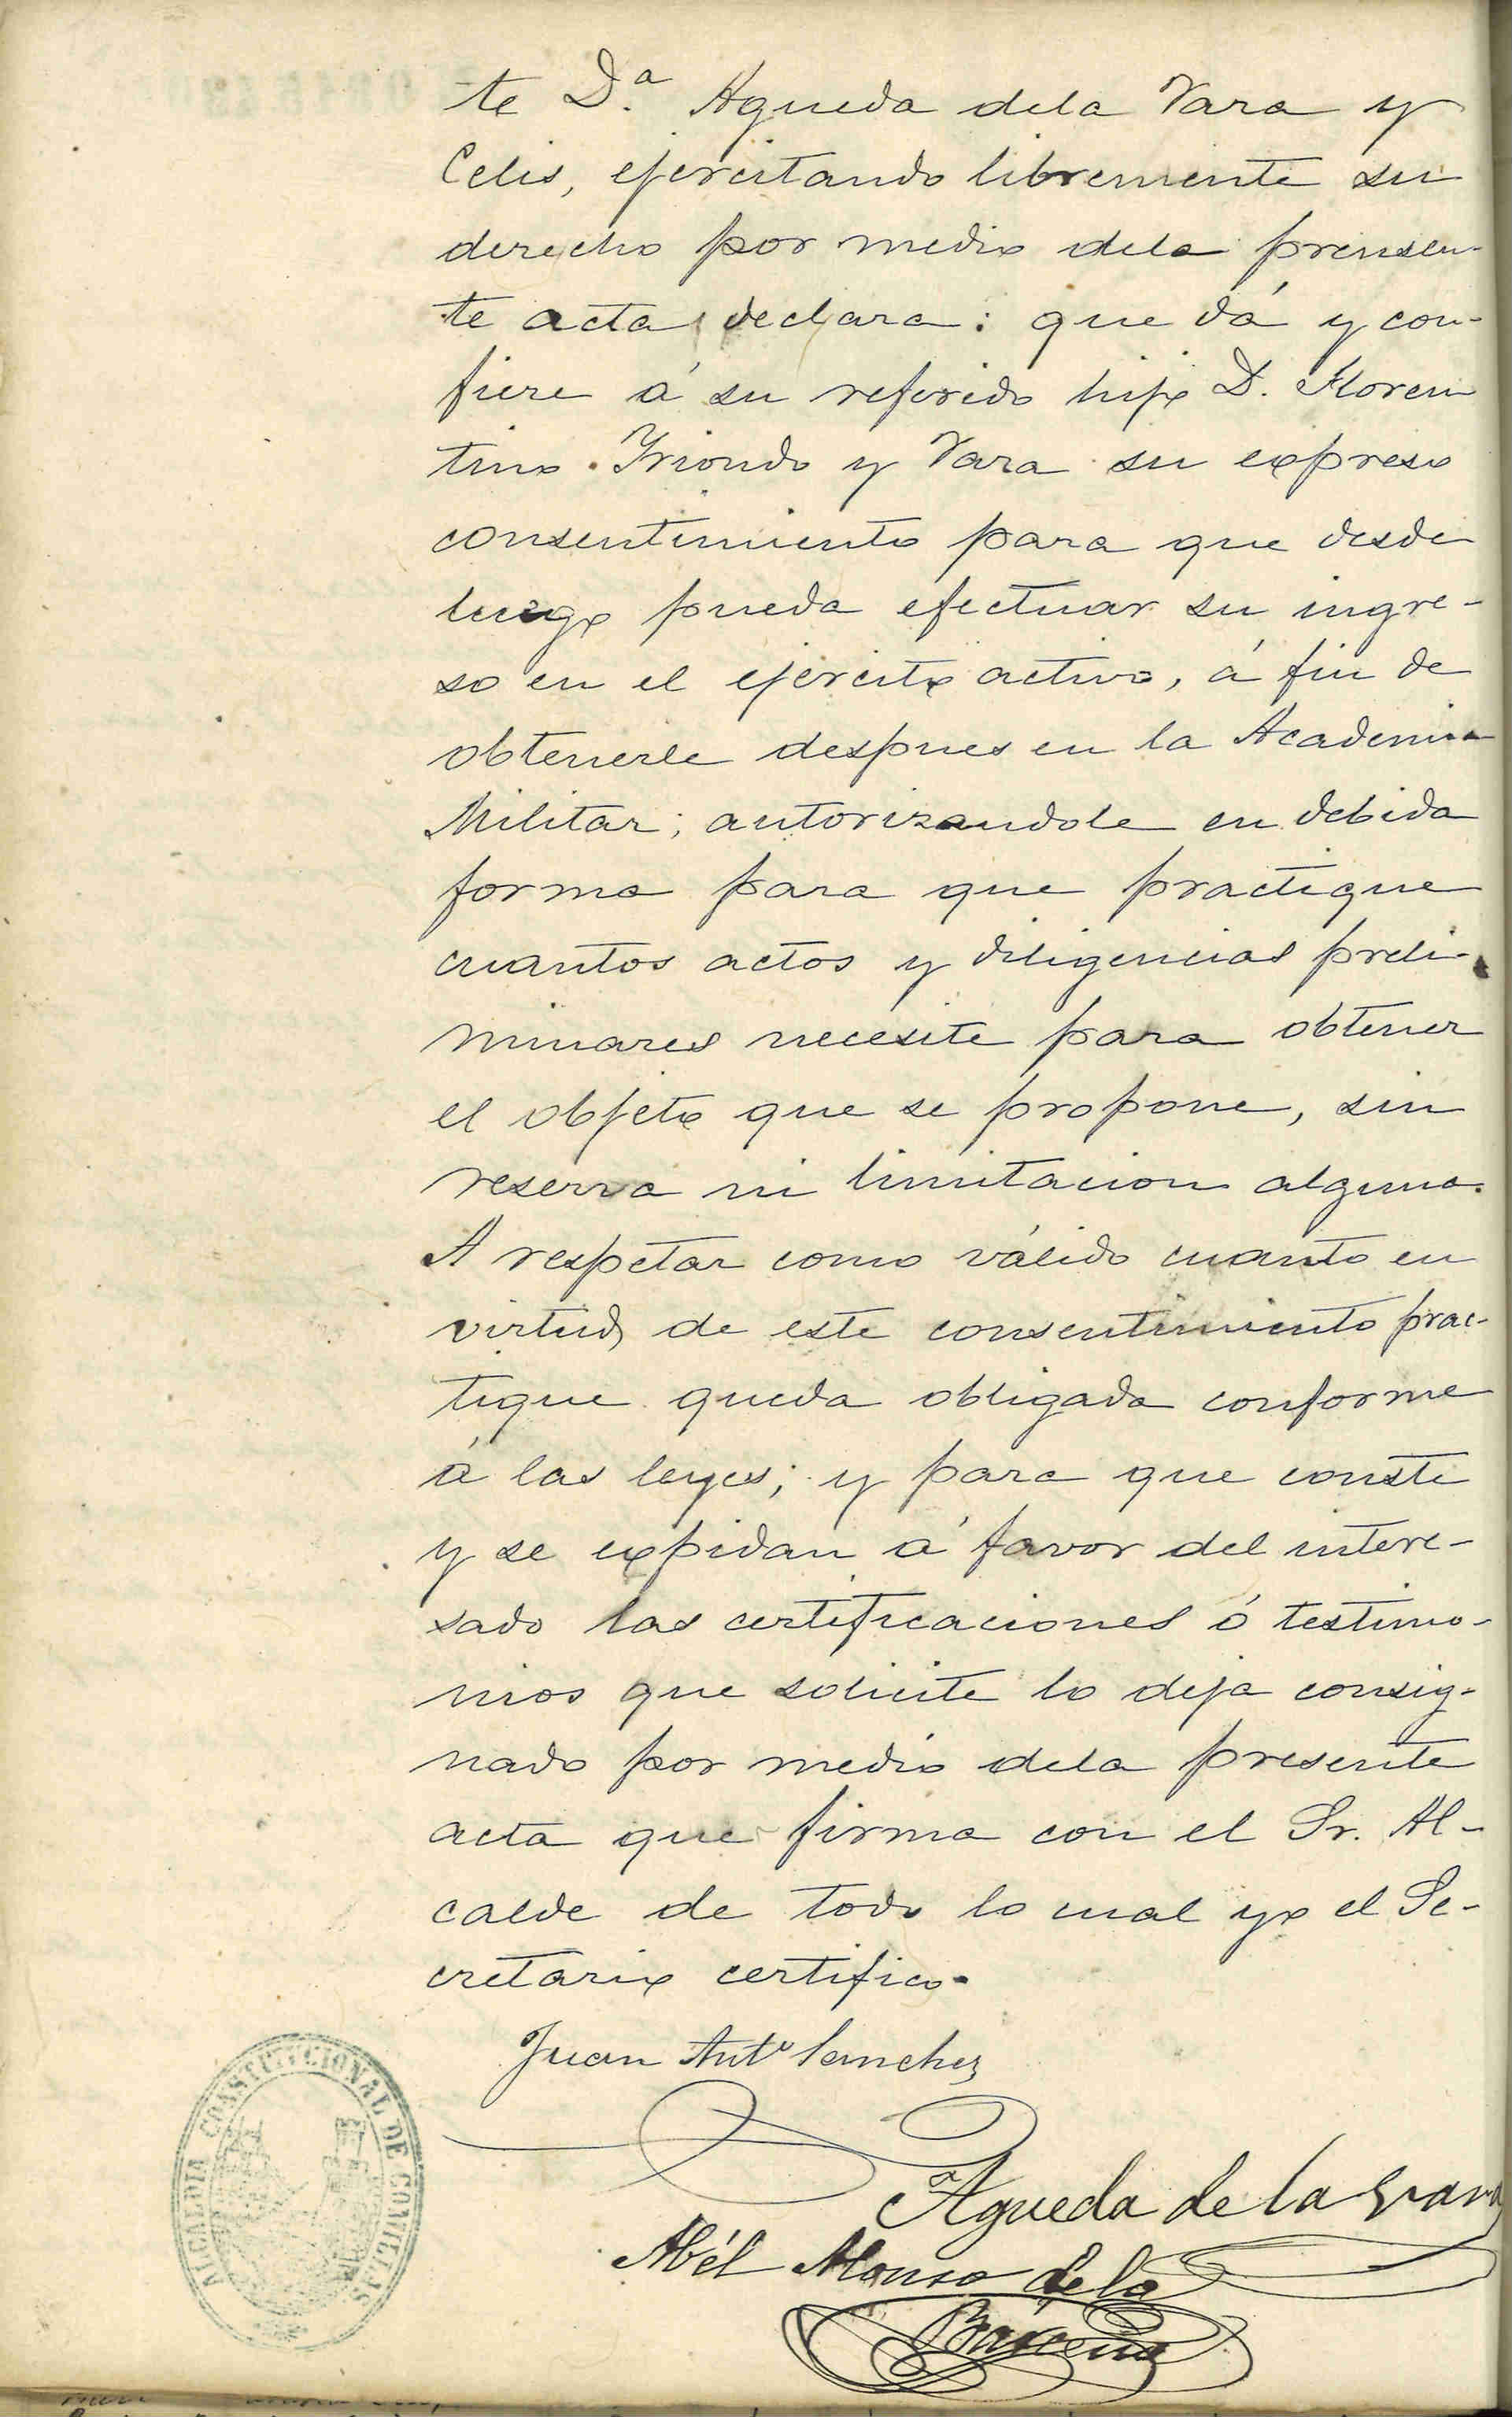 te D.ª Agueda dela Vara y
Celis, ejercitando libremente su
derecho por medio dela prensen-
te acta declara: que dá y con-
fiere á su referido hijo D. Floren
tino Yriondo y Vara su expreso
consentimiento para que desde
luego pueda efectuar su ingre-
so en el ejercito activo, á fin de
obtenerle despues en la Academia
Militar; autorizandole en debida
forma para que practique
cuantos actos y diligencias preli-
minares necesite para obtener
el objeto que se propone, sin
reserva ni limitacion alguna.
A respetar como válido cuanto en
virtud de este consentimiento prac-
tique queda obligada conforme
á las leyes; y para que conste
y se expidan á favor del intere-
sado las certificaciones ó testimo-
nios que solicite lo deja consig-
nado por medio dela presente
acta que firma con el Sr. Al-
calde de todo lo cual yo el Se-
cretario certifico.
Juan Antº Sanchez
Agueda de la Vara
Abél Alonso de la
Bárcena
ALCALDIA CONSTITUCIONAL DE COMILLAS